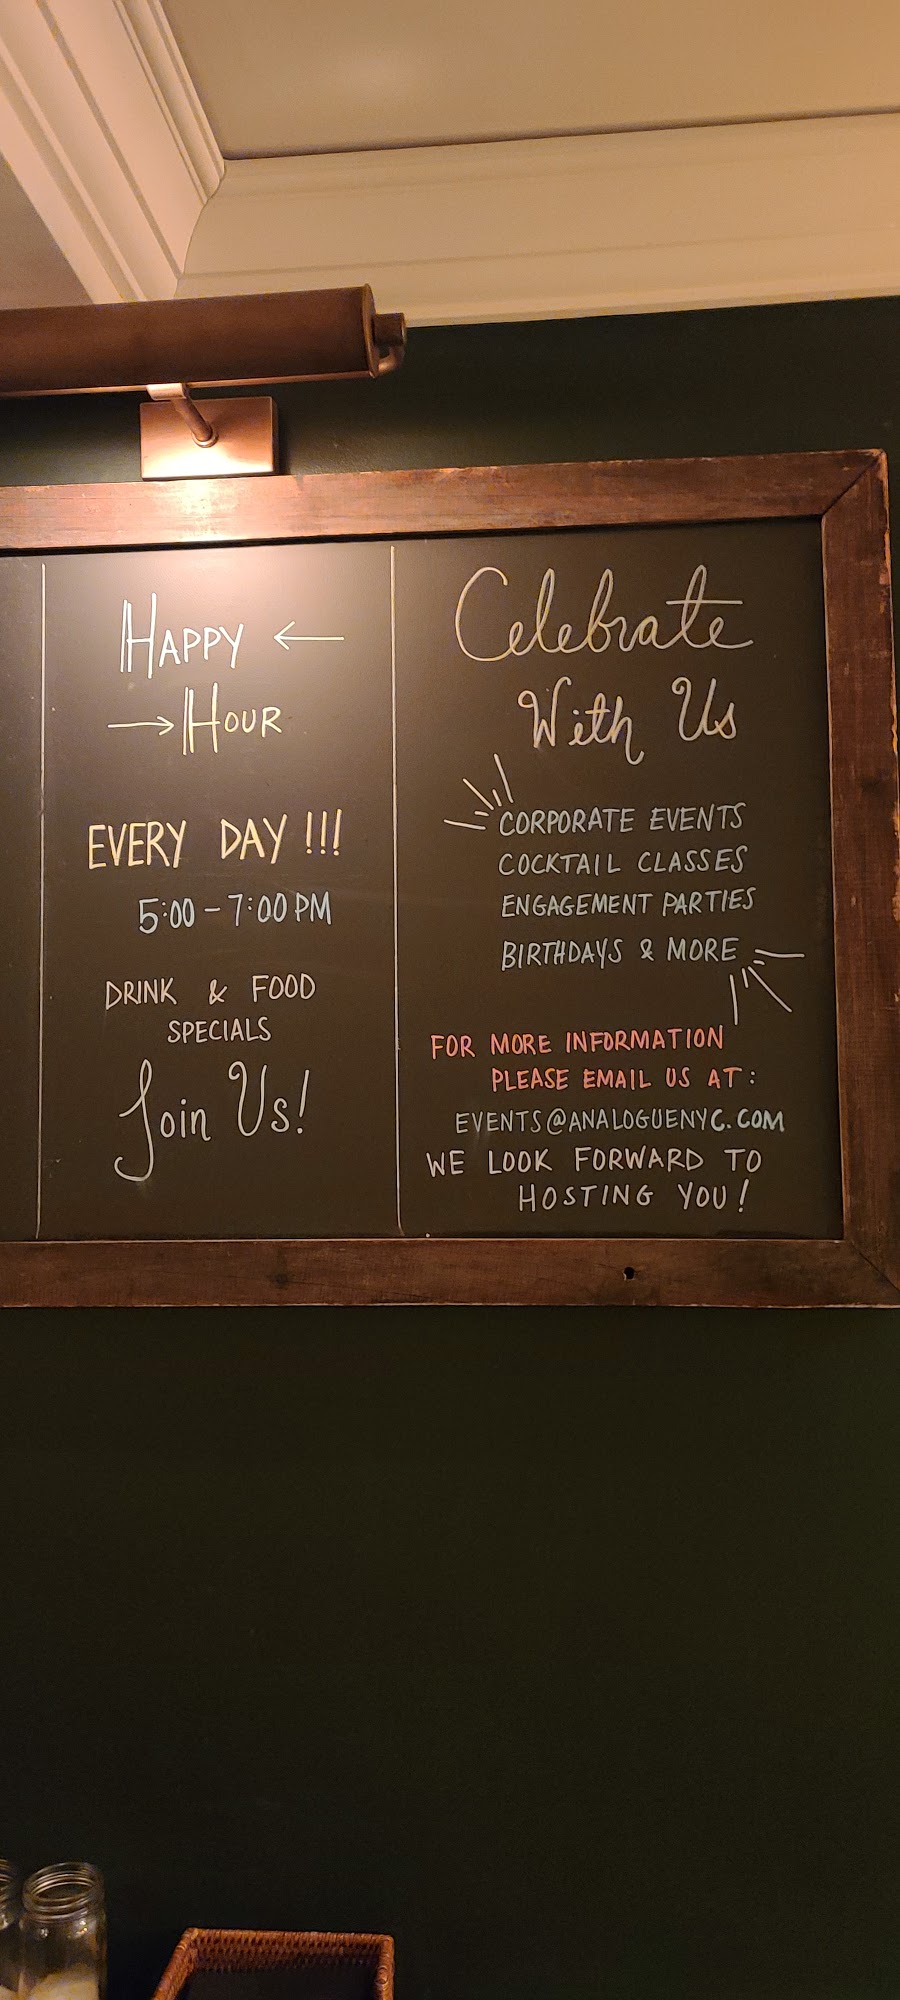 HAPPY
HOUR
EVERY DAY !!!
5:00 - 7:00 PM
DRINK & FOOD
SPECIALS
Join Us!
Celebrate
With Us
CORPORATE EVENTS
COCKTAIL CLASSES
ENGAGEMENT PARTIES
BIRTHDAYS & MORE
FOR MORE INFORMATION
PLEASE EMAIL US AT:
EVENTS@ANALOGUENYC.COM
WE LOOK FORWARD TO
HOSTING YOU!